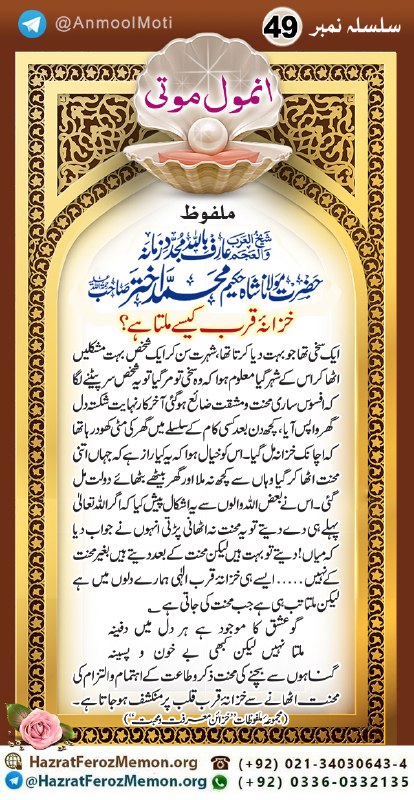 @AnmoolMoti
سلسلہ نمبر 49
انمول موتی
ملفوظ
شیخ العرب والعجم عارف باللہ مجدد زمانہ
حضرت مولانا شاہ حکیم محمد اختر صاحب
خزانۂ قرب کیسے ملتا ہے؟
ایک سخی تھا جو بہت دیا کرتا تھا، شہرت سن کر ایک شخص بہت مشکلیں
اٹھا کر اس کے شہر گیا معلوم ہوا کہ وہ سخی تو مر گیا تو یہ شخص سر پیٹنے لگا
کہ افسوس ساری محنت و مشقت ضائع ہوگئی آخر کار نہایت شکستہ دل
گھر واپس آیا، کچھ دن بعد کسی کام کے سلسلے میں گھر کی مٹی کھود رہا تھا
کہ اچانک خزانہ مل گیا۔ اس کو خیال ہوا کہ یہ کیا راز ہے کہ جہاں اتنی
محنت اٹھا کر گیا وہاں سے کچھ نہ ملا اور گھر بیٹھے بٹھائے دولت مل
گئی۔ اس نے بعض اللہ والوں سے یہ اشکال پیش کیا کہ اگر اللہ تعالیٰ
پہلے ہی دے دیتے تو یہ محنت نہ اٹھانی پڑتی انہوں نے جواب دیا
کہ میاں! دیتے تو بہت ہیں لیکن محنت کے بعد دیتے ہیں بغیر محنت
کے نہیں..... ایسے ہی خزانۂ قرب الٰہی ہمارے دلوں میں ہے
لیکن ملتا تب ہی ہے جب محنت کی جاتی ہے ؎
گو عشق کا موجود ہے ہر دل میں دفینہ
ملتا نہیں لیکن کبھی بے خون و پسینہ
گناہوں سے بچنے کی محنت ذکر و طاعت کے اہتمام و التزام کی
محنت اٹھانے سے خزانۂ قرب قلب پر منکشف ہو جاتا ہے۔
(مجموعہ ملفوظات ”خزائن معرفت و محبت“)
HazratFerozMemon.org
(+92) 021-34030643-4
@HazratFerozMemon.org
(+92) 0336-0332135